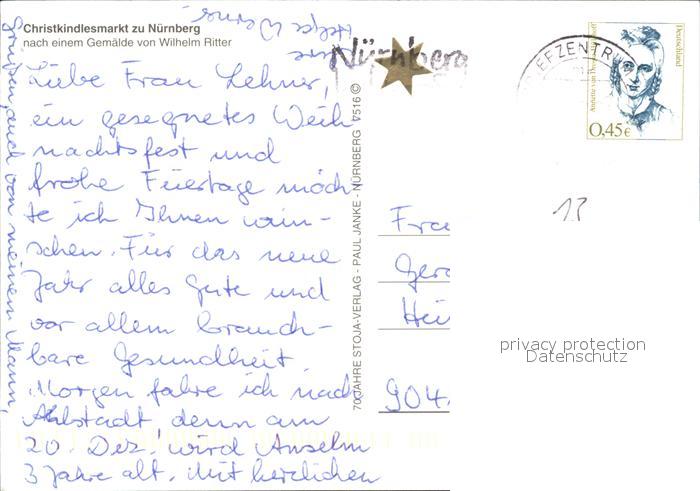 Christkindlesmarkt zu Nürnberg
nach einem Gemälde von Wilhelm Ritter
Liebe Frau Lehner,
ein gesegnetes Weih
nachtsfest und
frohe Feiertage möch
te ich Ihnen wün-
schen. Für das neue
Jahr alles Gute und
vor allem brauch-
bare Gesundheit.
Morgen fahre ich nach
denn am
20. Dez. wird Anselm
3 Jahre alt. Mit herzlichen
Grüßen auch von meinem Mann,
Ihre
Helga
70 JAHRE STOJA-VERLAG - PAUL JANKE - NÜRNBERG V516 ©
Nürnberg
BRIEFZENTRUM
Deutschland
Annette von Droste-Hülshoff
0,45 €
13
Frau
Ger
Hei
904
privacy protection
Datenschutz